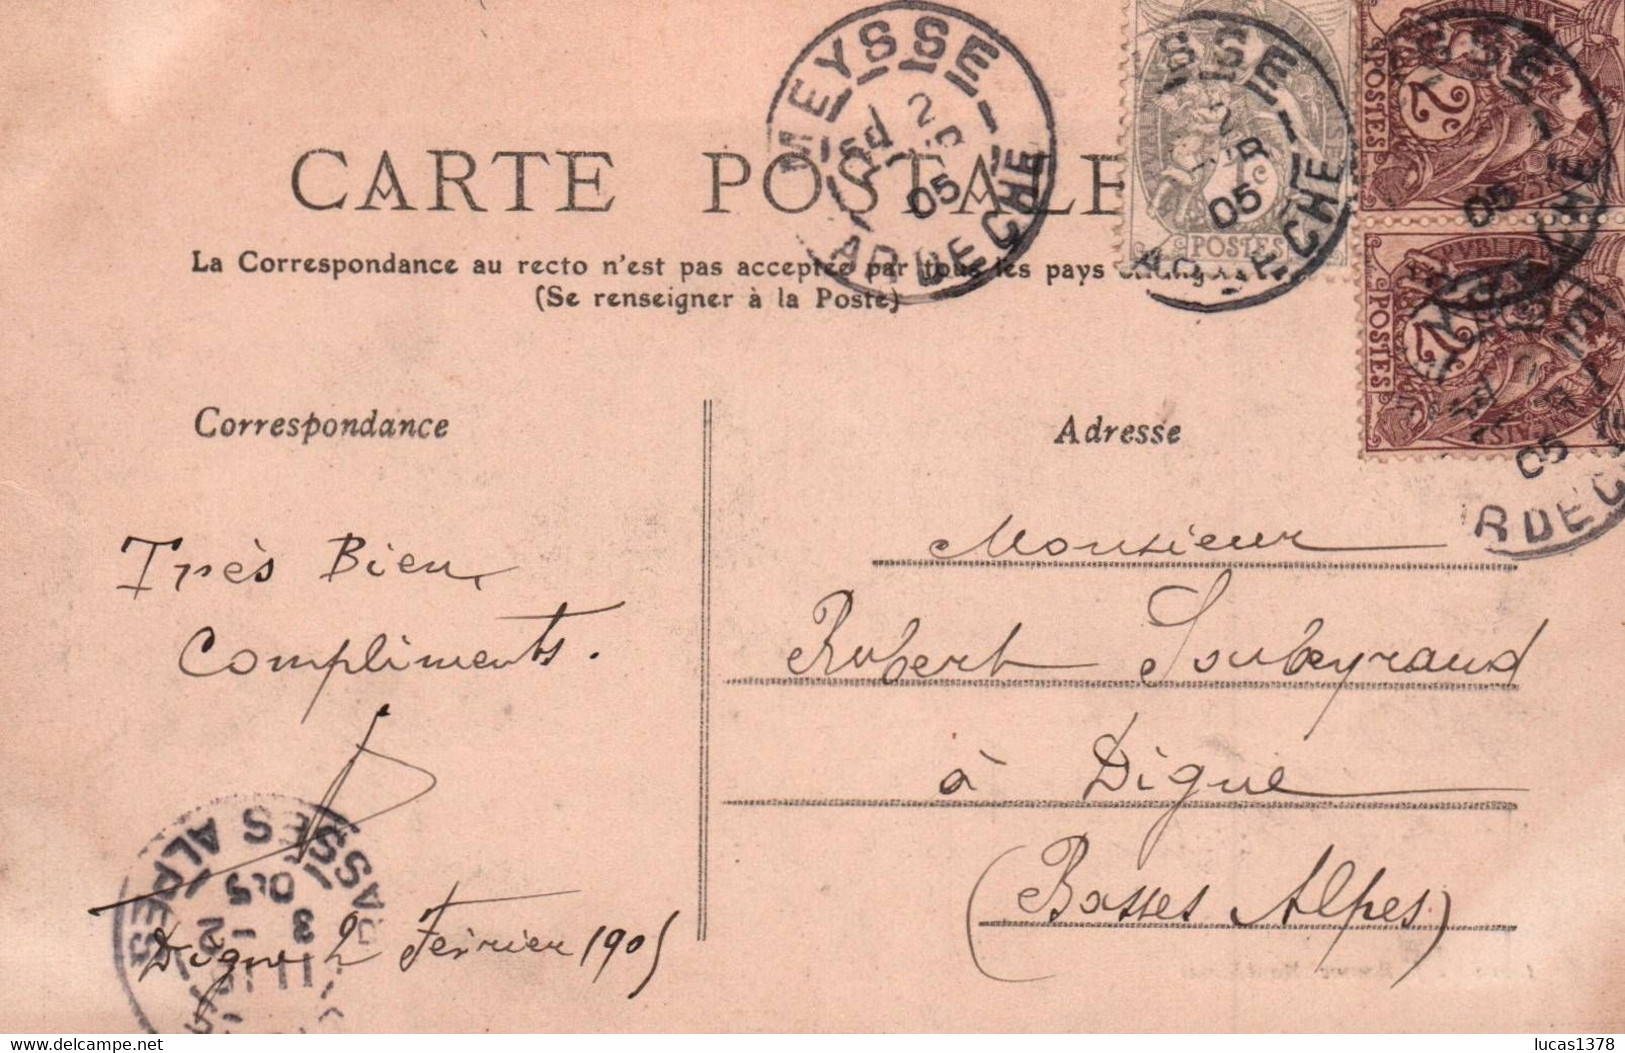 CARTE POSTALE
La Correspondance au recto n'est pas acceptée par tous les pays
(Se renseigner à la Poste)
MEYSSE
2
05
ARDECHE
SSE
05
CHE
1c
POSTES
SSE
05
CHE
POSTES
2c
POSTES
2c
05
RDEC
Correspondance
Adresse
Très Bien
Compliments.
Digne 2 Fevrier 1905
Monsieur
Robert Soubeyrand
à Digne
(Basses Alpes)
BASSES ALPES
lucas1378